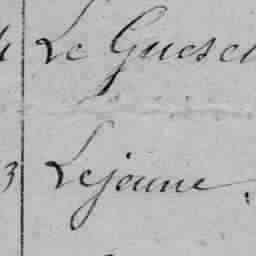 4 Le Guesch
3 Lejeune.